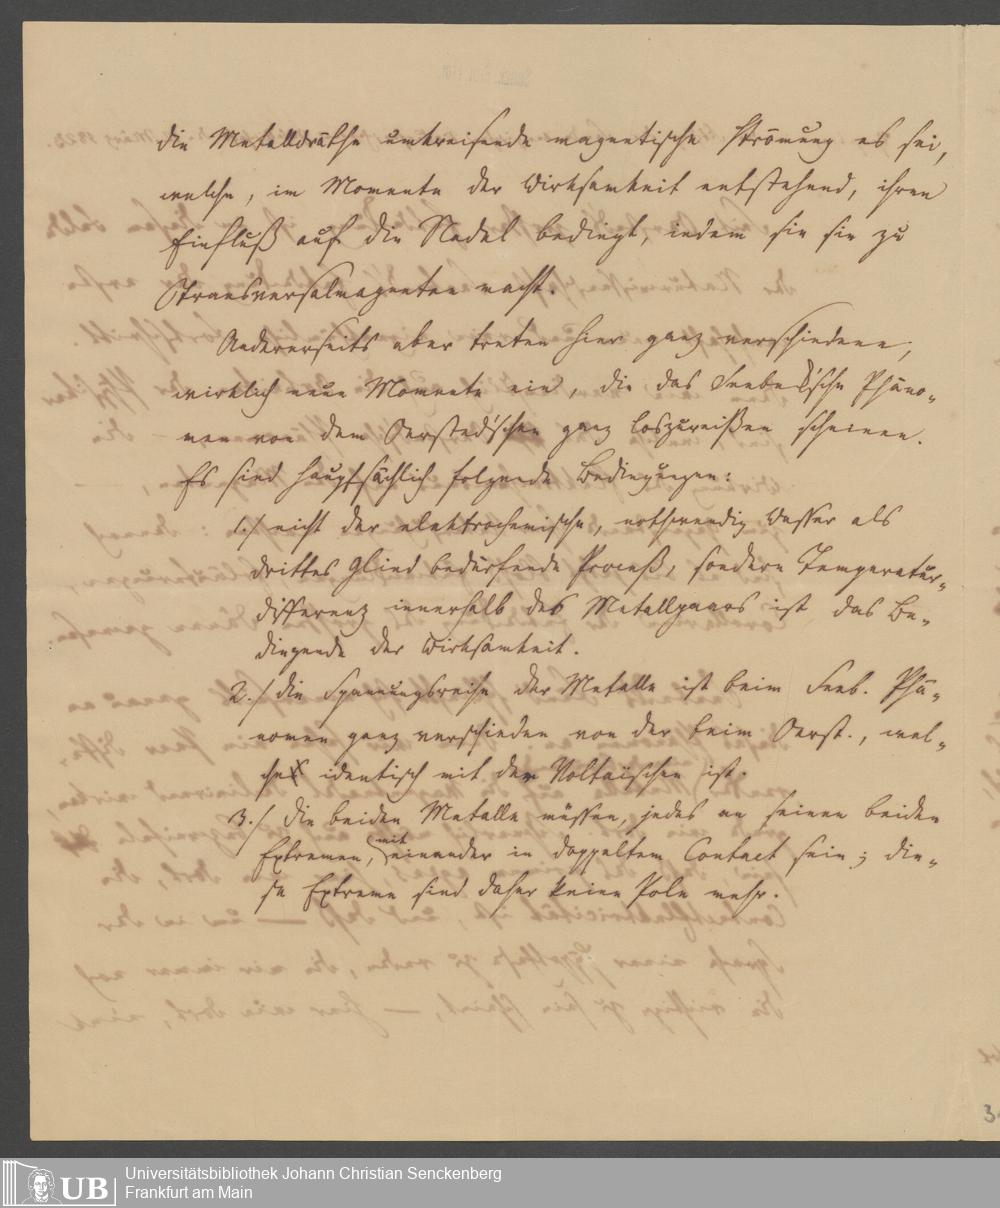 die Metalldräthe umkreisende magnetische Strömung es sei,
welche, im Momente der Wirksamkeit entstehend, ihren
Einfluß auf die Nadel bedingt, indem sie sie zu
Transversalmagneten macht.
Andererseits aber treten hier ganz verschiedene,
wirklich neue Momente ein, die das Seebeck'sche Phäno-
men von dem Oersted'schen ganz loszureißen scheinen.
Es sind hauptsächlich folgende Bedingungen:
1./ nicht der elektrochemische, nothwendig Wasser als
drittes Glied bedürfende Proceß, sondern Temperatur-
differenz innerhalb des Metallpaars ist das Be-
dingende der Wirksamkeit.
2./ die Spannungsreihe der Metalle ist beim Seeb. Phä-
nomen ganz verschieden von der beim Oerst., wel-
che identisch mit der Voltaischen ist.
3./ die beiden Metalle müssen, jedes an seinen beiden
Extremen, mit einander in doppeltem Contact sein; die-
se Extreme sind daher keine Pole mehr.
UB
Universitätsbibliothek Johann Christian Senckenberg
Frankfurt am Main